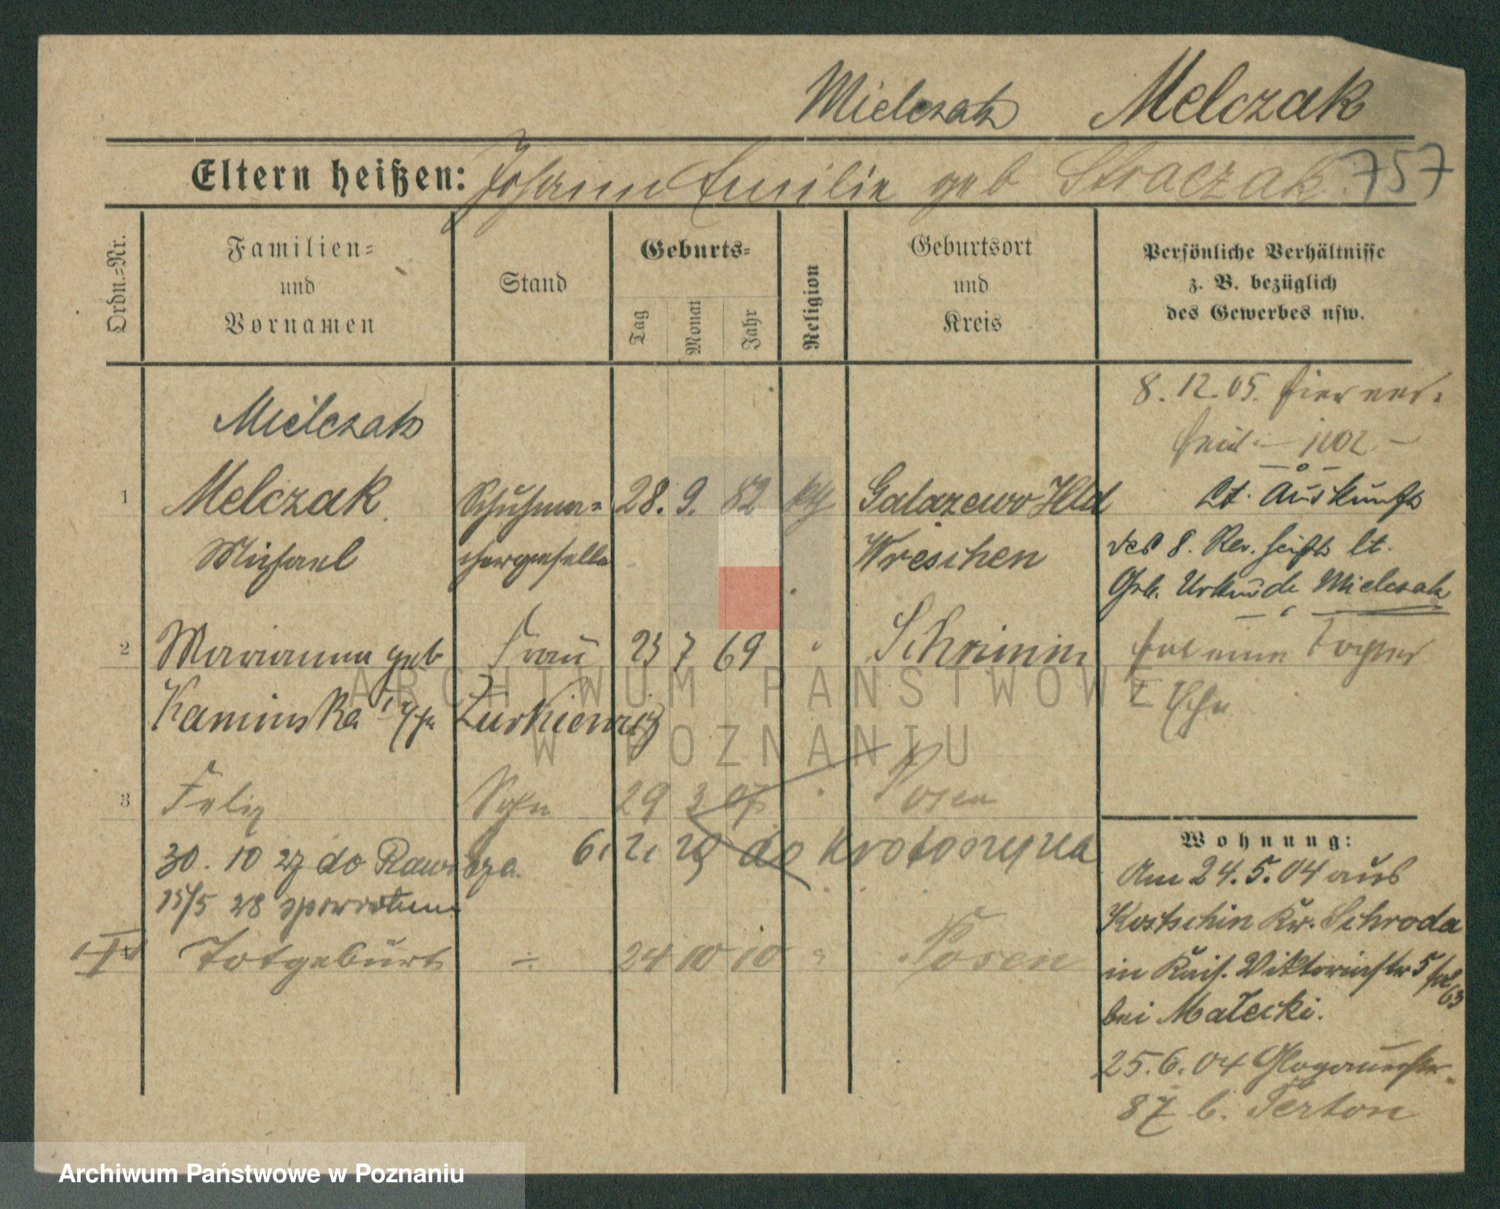 Mielczak Melczak
Eltern heißen: Johann Emilie geb Straczak 757
Ordn.-Nr.
Familien- und Vornamen
Stand
Geburts-
Tag
Monat
Jahr
Religion
Geburtsort und Kreis
Persönliche Verhältnisse z. B. bezüglich des Gewerbes usw.
Mielczak
1 Melczak Schuhma- 28. 9. 82 kth Gatazewo Hld
Michael chergeselle Wreschen
2 Marianna geb Frau 23 7 69 " Schrimm
Kaminska Zurkiewicz
3 Felix Sohn 29 3 07 " Posen
30. 10 27 do Rawicza 6. do Krotoszyna
15/5 28
Totgeburt ÷ 24 10 10 " Posen
8. 12. 05. hier ver-
Lt. Auskunft
des 8. Rev. heißt lt.
Geb. Urkunde Mielczak
hat eine Tochter
I Ehe
Wohnung:
Am 24. 5. 04 aus
Kostschin Kr. Schroda
in Kais. Viktoriastr 5
bei Małecki.
25. 6. 04 Glogauerstr.
87 b. Terton
ARCHIWUM PAŃSTWOWE
W POZNANIU
Archiwum Państwowe w Poznaniu